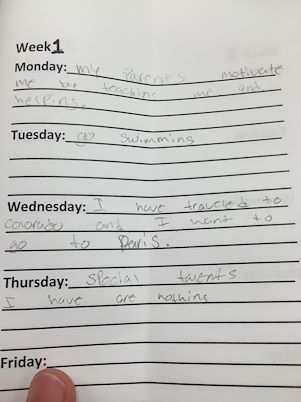 Week 1
Monday: My Parents motivate
me by teaching me and
helping.
Tuesday: go swimming
Wednesday: I have traveled to
Colorado and I want to
go to Paris.
Thursday: special talents
I have are nothing
Friday: